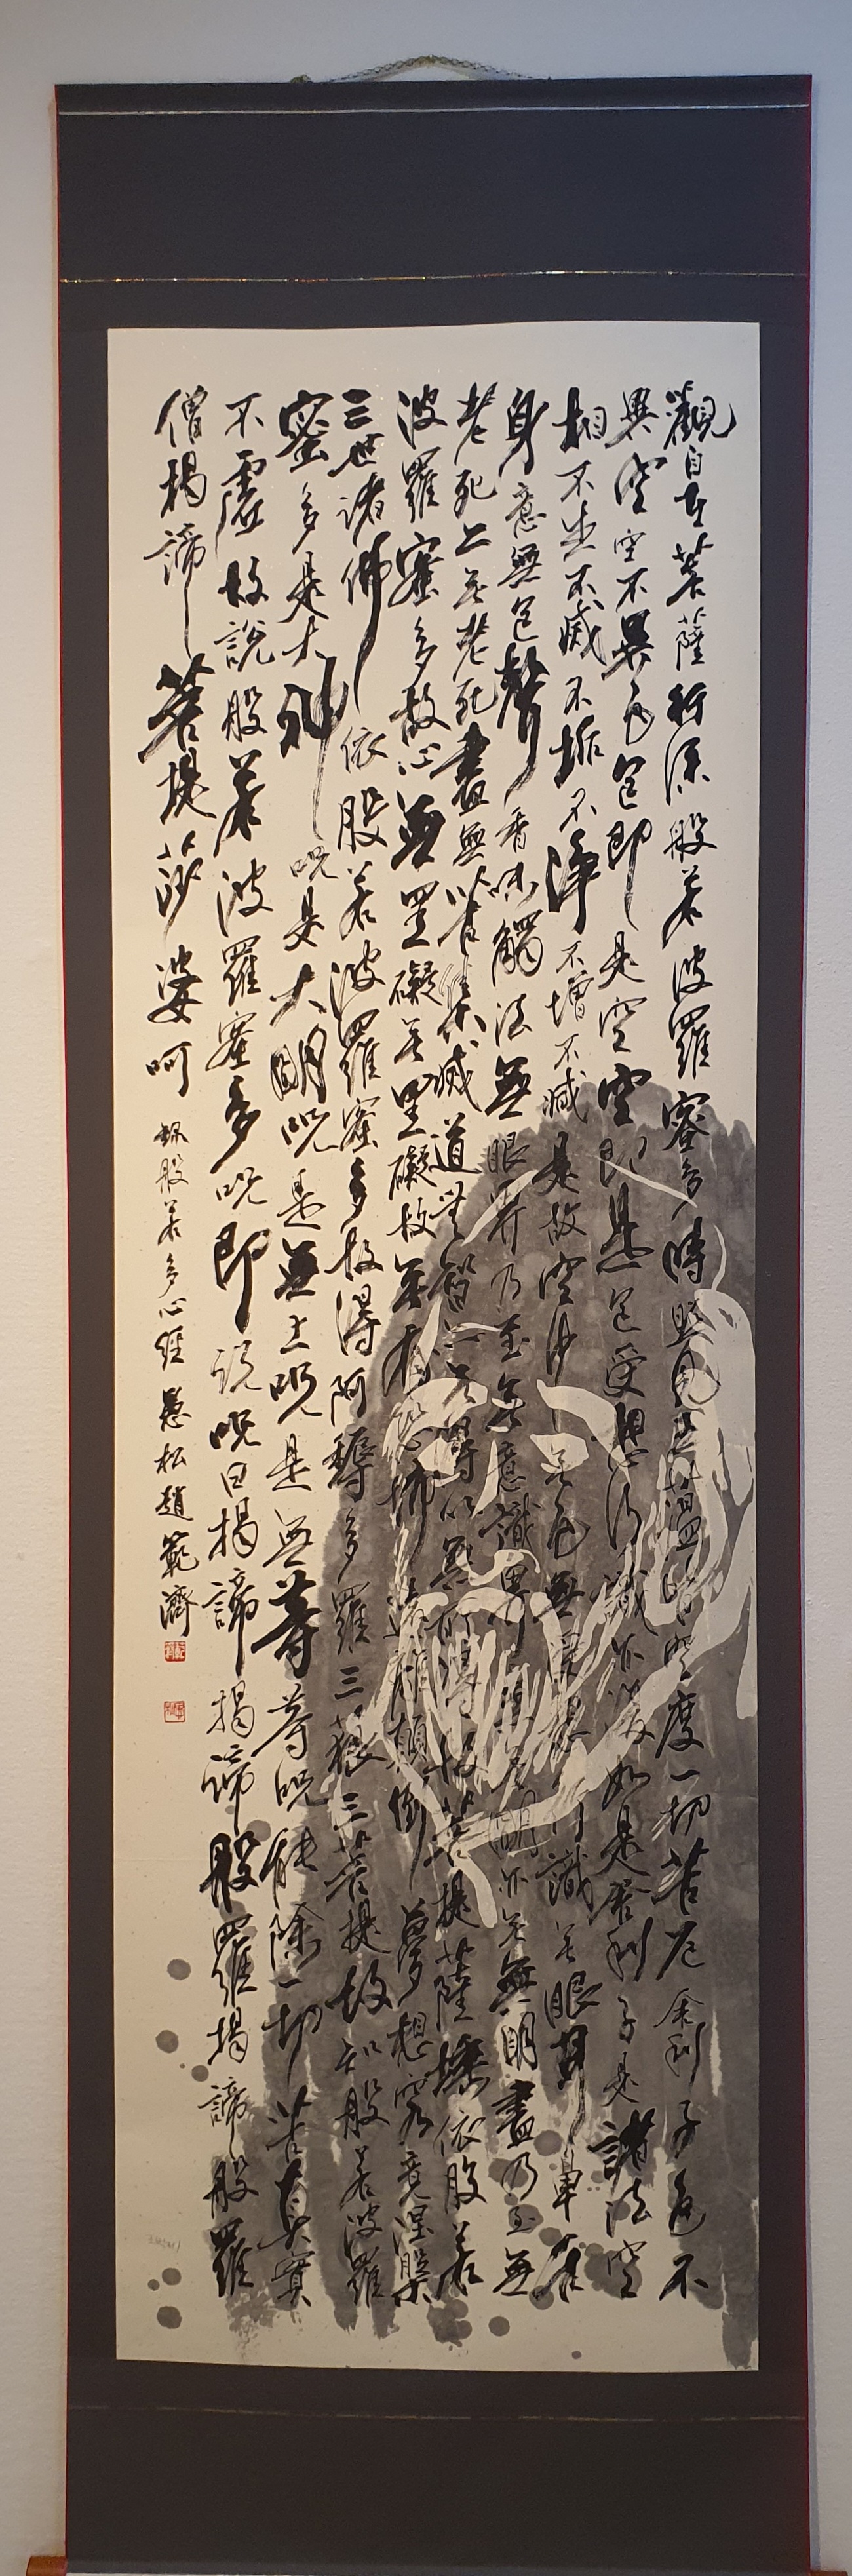 觀自在菩薩行深般若波羅蜜多時照見五蘊皆空度一切苦厄舍利子色不
異空空不異色色即是空空即是色受想行識亦復如是舍利子是諸法空
相不生不滅不垢不淨不增不減是故空中無色無受想行識無眼耳鼻舌
身意無色聲香味觸法無眼界乃至無意識界無無明亦無無明盡乃至無
老死亦無老死盡無苦集滅道無智亦無得以無所得故菩提薩埵依般若
波羅蜜多故心無罣礙無罣礙故無有恐怖遠離顛倒夢想究竟涅槃
三世諸佛依般若波羅蜜多故得阿耨多羅三藐三菩提故知般若波羅
蜜多是大神呪是大明呪是無上呪是無等等呪能除一切苦真實
不虛故說般若波羅蜜多呪即說呪曰揭諦揭諦般羅揭諦般羅
僧揭諦菩提莎婆呵 般若多心經 愚松趙範濟